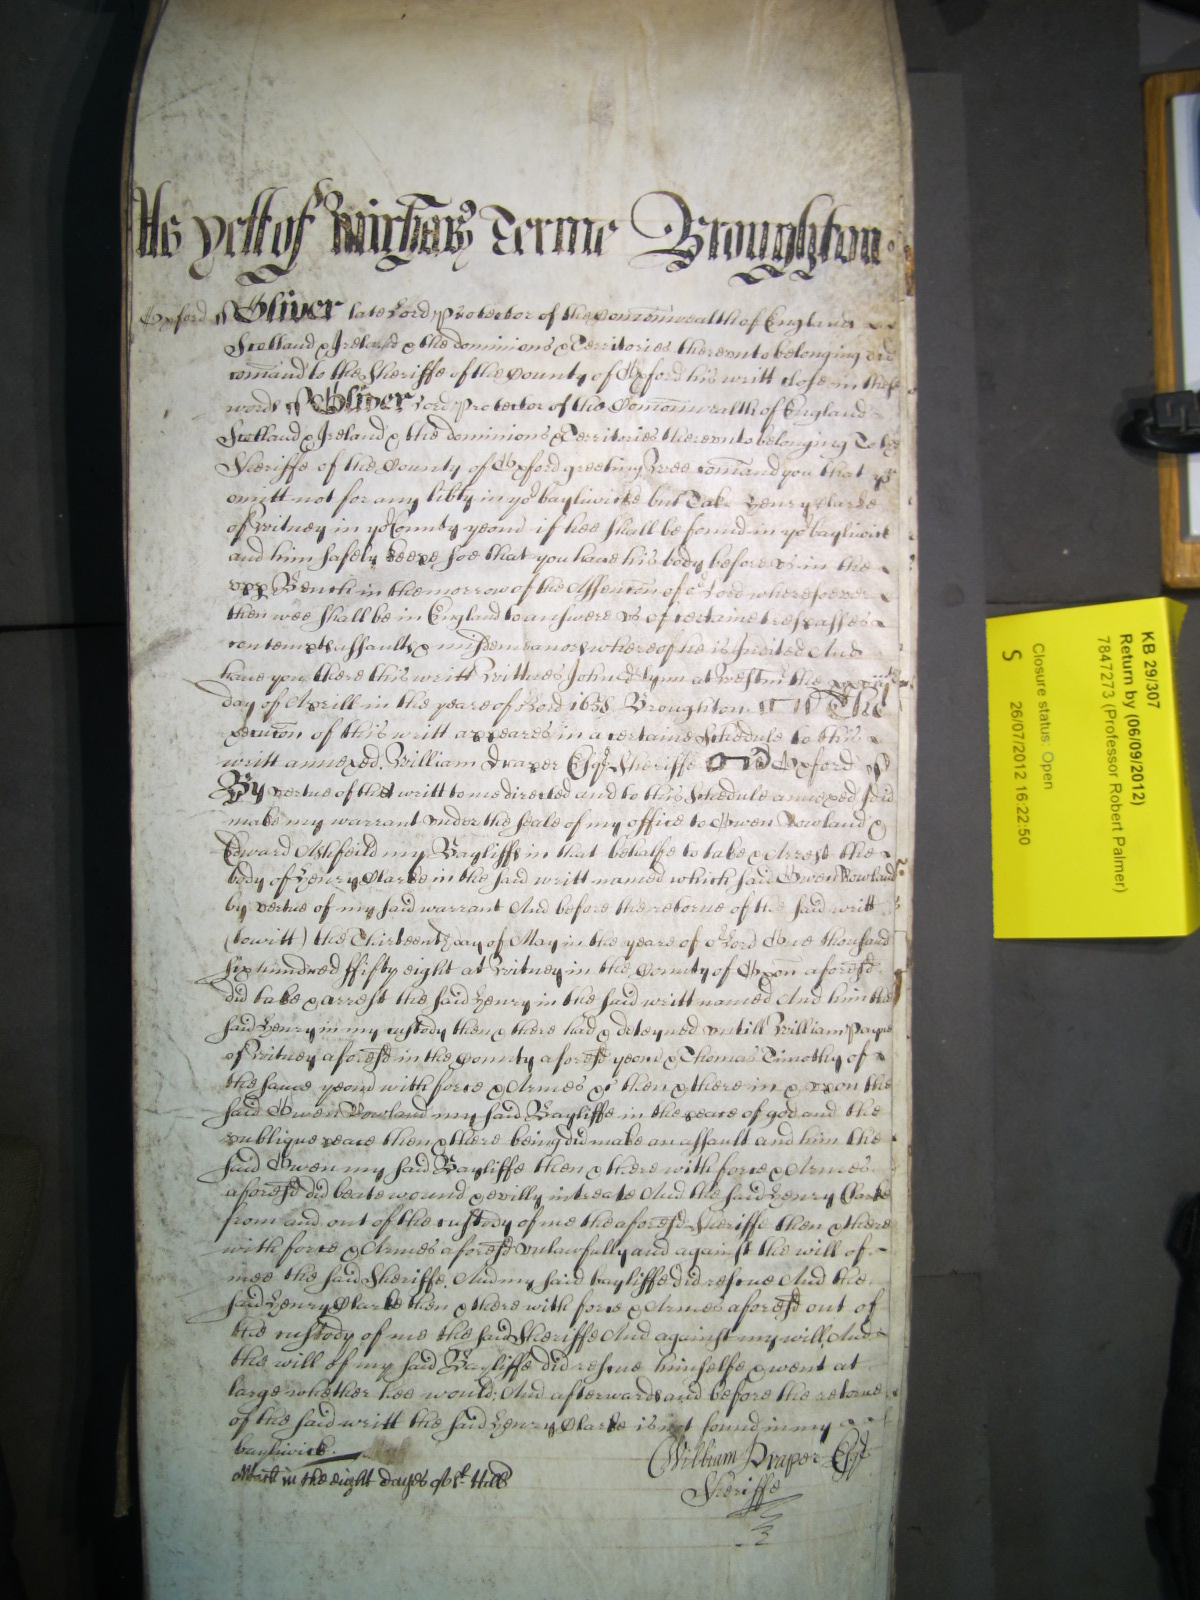 As yett of Michas Terme Broughton.
Oxford ss Oliver late Lord Protector of the Comonwealth of England
Scotland & Ireland & the dominions & Territories thereunto belonging did
comand to the Sheriffe of the County of Oxford his writt close in these
words ss Oliver Lord Protector of the Comonwealth of England
Scotland & Ireland & the dominions & Territories thereunto belonging To the
Sheriffe of the County of Oxford greeting Wee comand you that yo
omitt not for any libty in yor bayliwicke but Take Henry Clarke
of Witney in yor County yeom if hee shall be found in yor bayliwick
and him safely keepe soe that you have his body before us in the
upp Bench in the morrow of the Assencon of or Lord wheresoever
then wee shall be in England to answere us of certaine trespasses
contempts assaults & misdemeanors whereof he is Indicted And
have you there this writt Wittnes John Glynn at Westm the
day of Aprill in the yeare of or Lord 1658 Broughton The
execucon of this writt appeares in a certaine Schedule to this
writt annexed. William Draper Esqr Sheriffe Oxford ss
By vertue of the writt to me directed and to this Schedule annexed I did
make my warrant under the seale of my office to Owen Rowland &
Edward Ashfeild my Bayliffs in that behalfe to take & Arrest the
body of Henry Clarke in the said writt named which said Owen Rowland
by vertue of my said warrant And before the retorne of the said writt
(towitt) the Thirteenth day of May in the yeare of or Lord One thousand
six hundred ffifty eight at Witney in the County of Oxon aforesd
did take & arrest the said Henry in the said writt named And him the
said Henry in my custody then & there had & deteyned untill William Payne
of Witney aforesd in the County aforesd yeom & Thomas Timothy of
the same yeom with force & Armes &c then & there in & upon the
said Owen Rowland my said Bayliffe in the peace of god and the
publique peace then & there being did make an assault and him the
said Owen my said Bayliffe then & there with force & Armes
aforesd did beate wound & evilly intreate And the said Henry Clarke
from and out of the custody of me the aforesd Sheriffe then & there
with force & Armes aforesd unlawfully and against the will of
mee the said Sheriffe. And my said bayliffe did rescue And the
said Henry Clarke then & there with force & Armes aforesd out of
the custody of me the said Sheriffe And against my will And
the will of my said Bayliffe did rescue himselfe & went at
large whether hee would. And afterwards and before the retorne
of the said writt the said Henry Clarke is not found in my
bayliwick.
William Draper Esqr
Sheriffe
Attach in the eight dayes of St Hill
KB 29/307
Return by (06/09/2012)
7847273 (Professor Robert Palmer)
Closure status: Open
S 26/07/2012 16:22:50